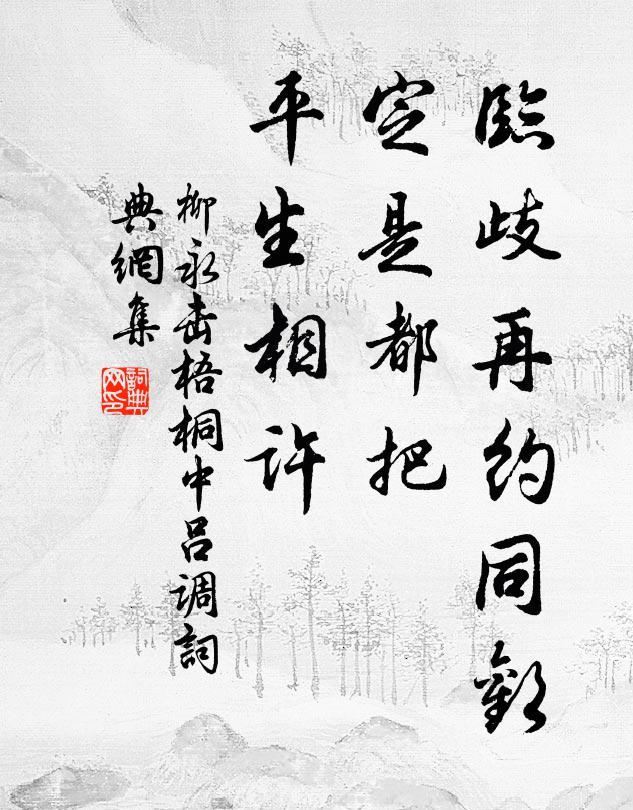 臨歧再約同歡
定是都把
平生相許
柳永击梧桐中吕調詞
典網集
詞典
网印